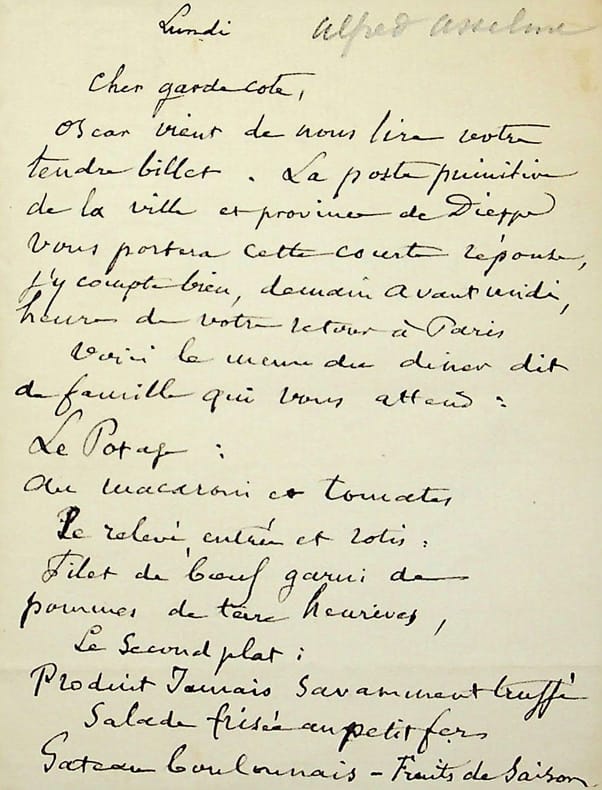 Lundi
alfred asseline
Cher garde cote,
Oscar vient de nous lire votre
tendre billet. La poste primitive
de la ville et province de Dieppe
vous portera cette courte réponse,
j'y compte bien, demain avant midi,
heure de votre retour à Paris
Voici le menu du diner dit
de famille qui vous attend :
Le Potage :
au macaroni et tomates
Le relevé entrée et rotis :
Filet de bœuf garni de
pommes de terre heureuses,
Le Second plat :
Produit Jamais Savamment truffé
Salade frisée au petit fer
Gateau boulonnais - Fruits de Saison